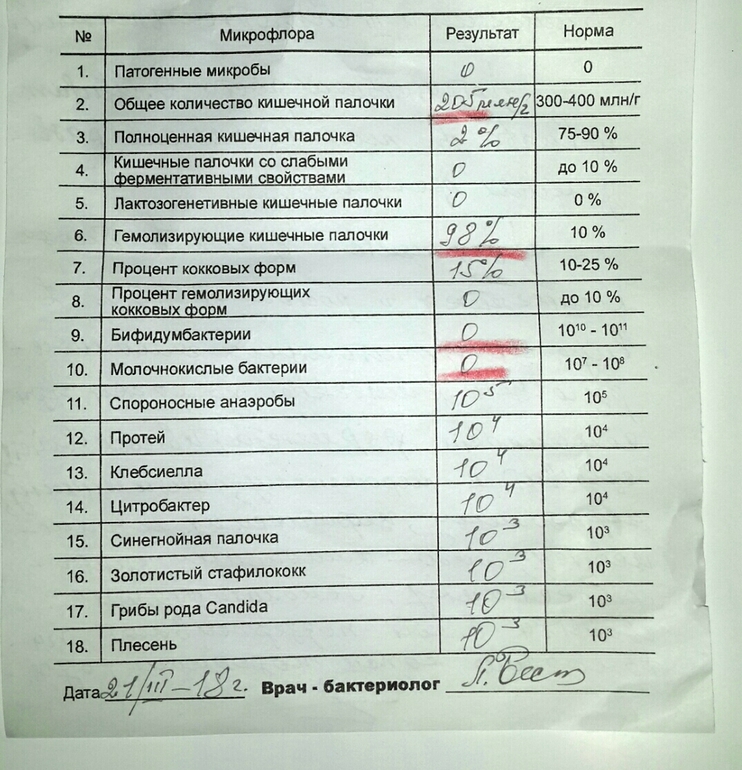 № Микрофлора Результат Норма
1. Патогенные микробы 0 0
2. Общее количество кишечной палочки 205 млн/г 300-400 млн/г
3. Полноценная кишечная палочка 2% 75-90 %
4. Кишечные палочки со слабыми
ферментативными свойствами 0 до 10 %
5. Лактозогенетивные кишечные палочки 0 0 %
6. Гемолизирующие кишечные палочки 98% 10 %
7. Процент кокковых форм 15% 10-25 %
8. Процент гемолизирующих
кокковых форм 0 до 10 %
9. Бифидумбактерии 0 10¹⁰ - 10¹¹
10. Молочнокислые бактерии 0 10⁷ - 10⁸
11. Спороносные анаэробы 10⁵ 10⁵
12. Протей 10⁴ 10⁴
13. Клебсиелла 10⁴ 10⁴
14. Цитробактер 10⁴ 10⁴
15. Синегнойная палочка 10³ 10³
16. Золотистый стафилококк 10³ 10³
17. Грибы рода Candida 10³ 10³
18. Плесень 10³ 10³
Дата 21/III-18г. Врач - бактериолог